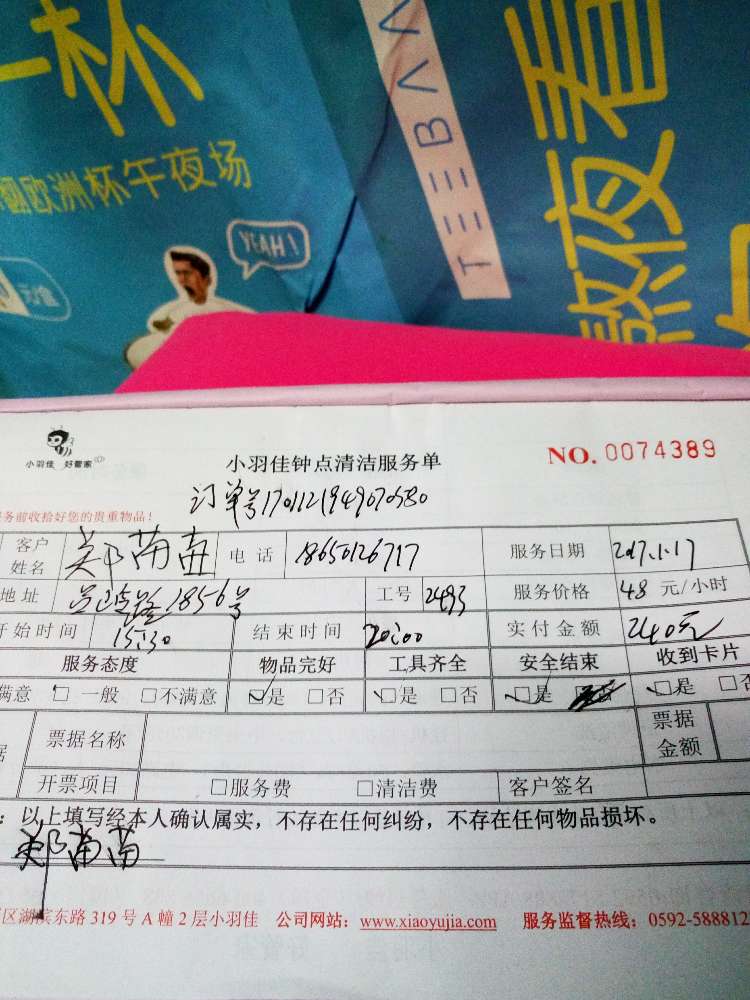 一杯
欧洲杯午夜场
元/盒
YEAH!
夜看
小羽佳 好管家
小羽佳钟点清洁服务单
NO. 0074389
订单号
务前收拾好您的贵重物品!
客户姓名 郑苗苗 电话 18650126717 服务日期 2017.1.17
地址 1856号 工号 2493 服务价格 48 元/小时
开始时间 15:30 结束时间 20:00 实付金额 240元
服务态度 物品完好 工具齐全 安全结束 收到卡片
满意 □一般 □不满意 ☑是 □否 ☑是 □否 ☑是 ☑是 □否
票据名称 票据金额
开票项目 □服务费 □清洁费 客户签名
:以上填写经本人确认属实，不存在任何纠纷，不存在任何物品损坏。
郑苗苗
区湖滨东路 319 号 A 幢 2 层小羽佳 公司网站：www.xiaoyujia.com 服务监督热线：0592-588812